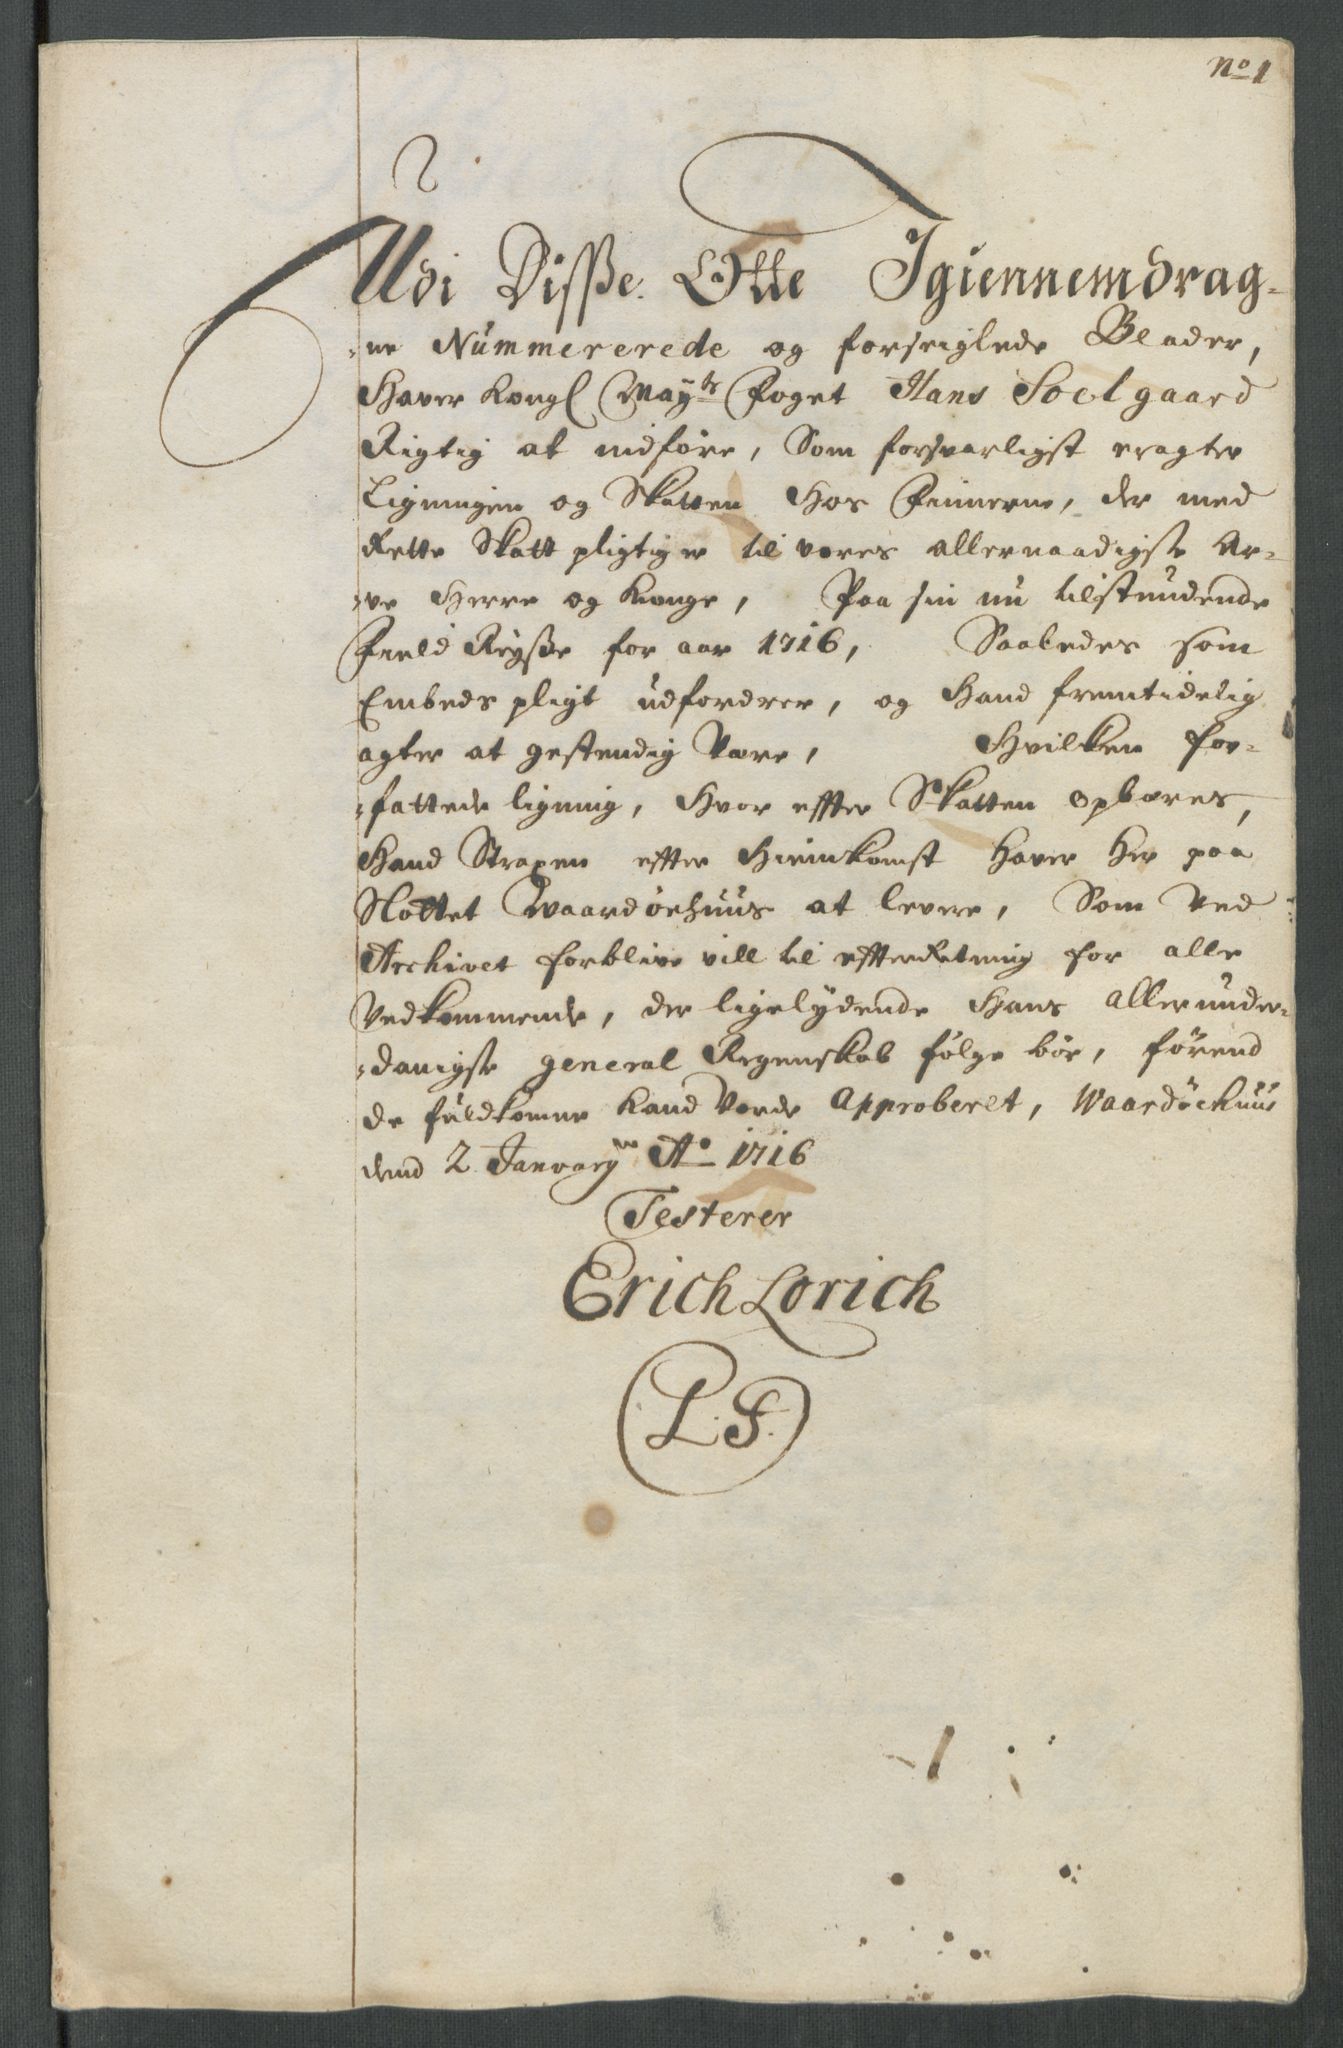 No 1
Udi Disse Otte Igiennemdrag-
-ne Nummererede og forseiglede Blader,
Haver Kongl Mayts Foget Hans Soelgaard
Rigtig at indføre, Som forsvarligst eragter
Ligningen og Skatten Hos Finnerne, der med
Rette Skatt pligtig er til vores allernaadigste Ar-
-ve Herre og Konge, Paa sin nu tilstundende
Field Reysse for aar 1716, Saaledes som
Embeds pligt udfordrer, og Hand fremtidelig
agter at gestendig Være, Hvilken for-
-fattede ligning, Hvor effter Skatten opbæres,
Hand Straxen effter Hiemkomst haver her paa
Slottet Waardøehuus at levere, Som Ved
Archivet forblive vill til effterRetning for alle
Vedkommende, der ligelydende Hans allerunder-
-danigste general Regenskab følge bør, førend
de fuldkomne kand Vorde Approberet, Waardöehuus
dend 2 January Ao 1716
Testerer
Erich Lorich
L. S.